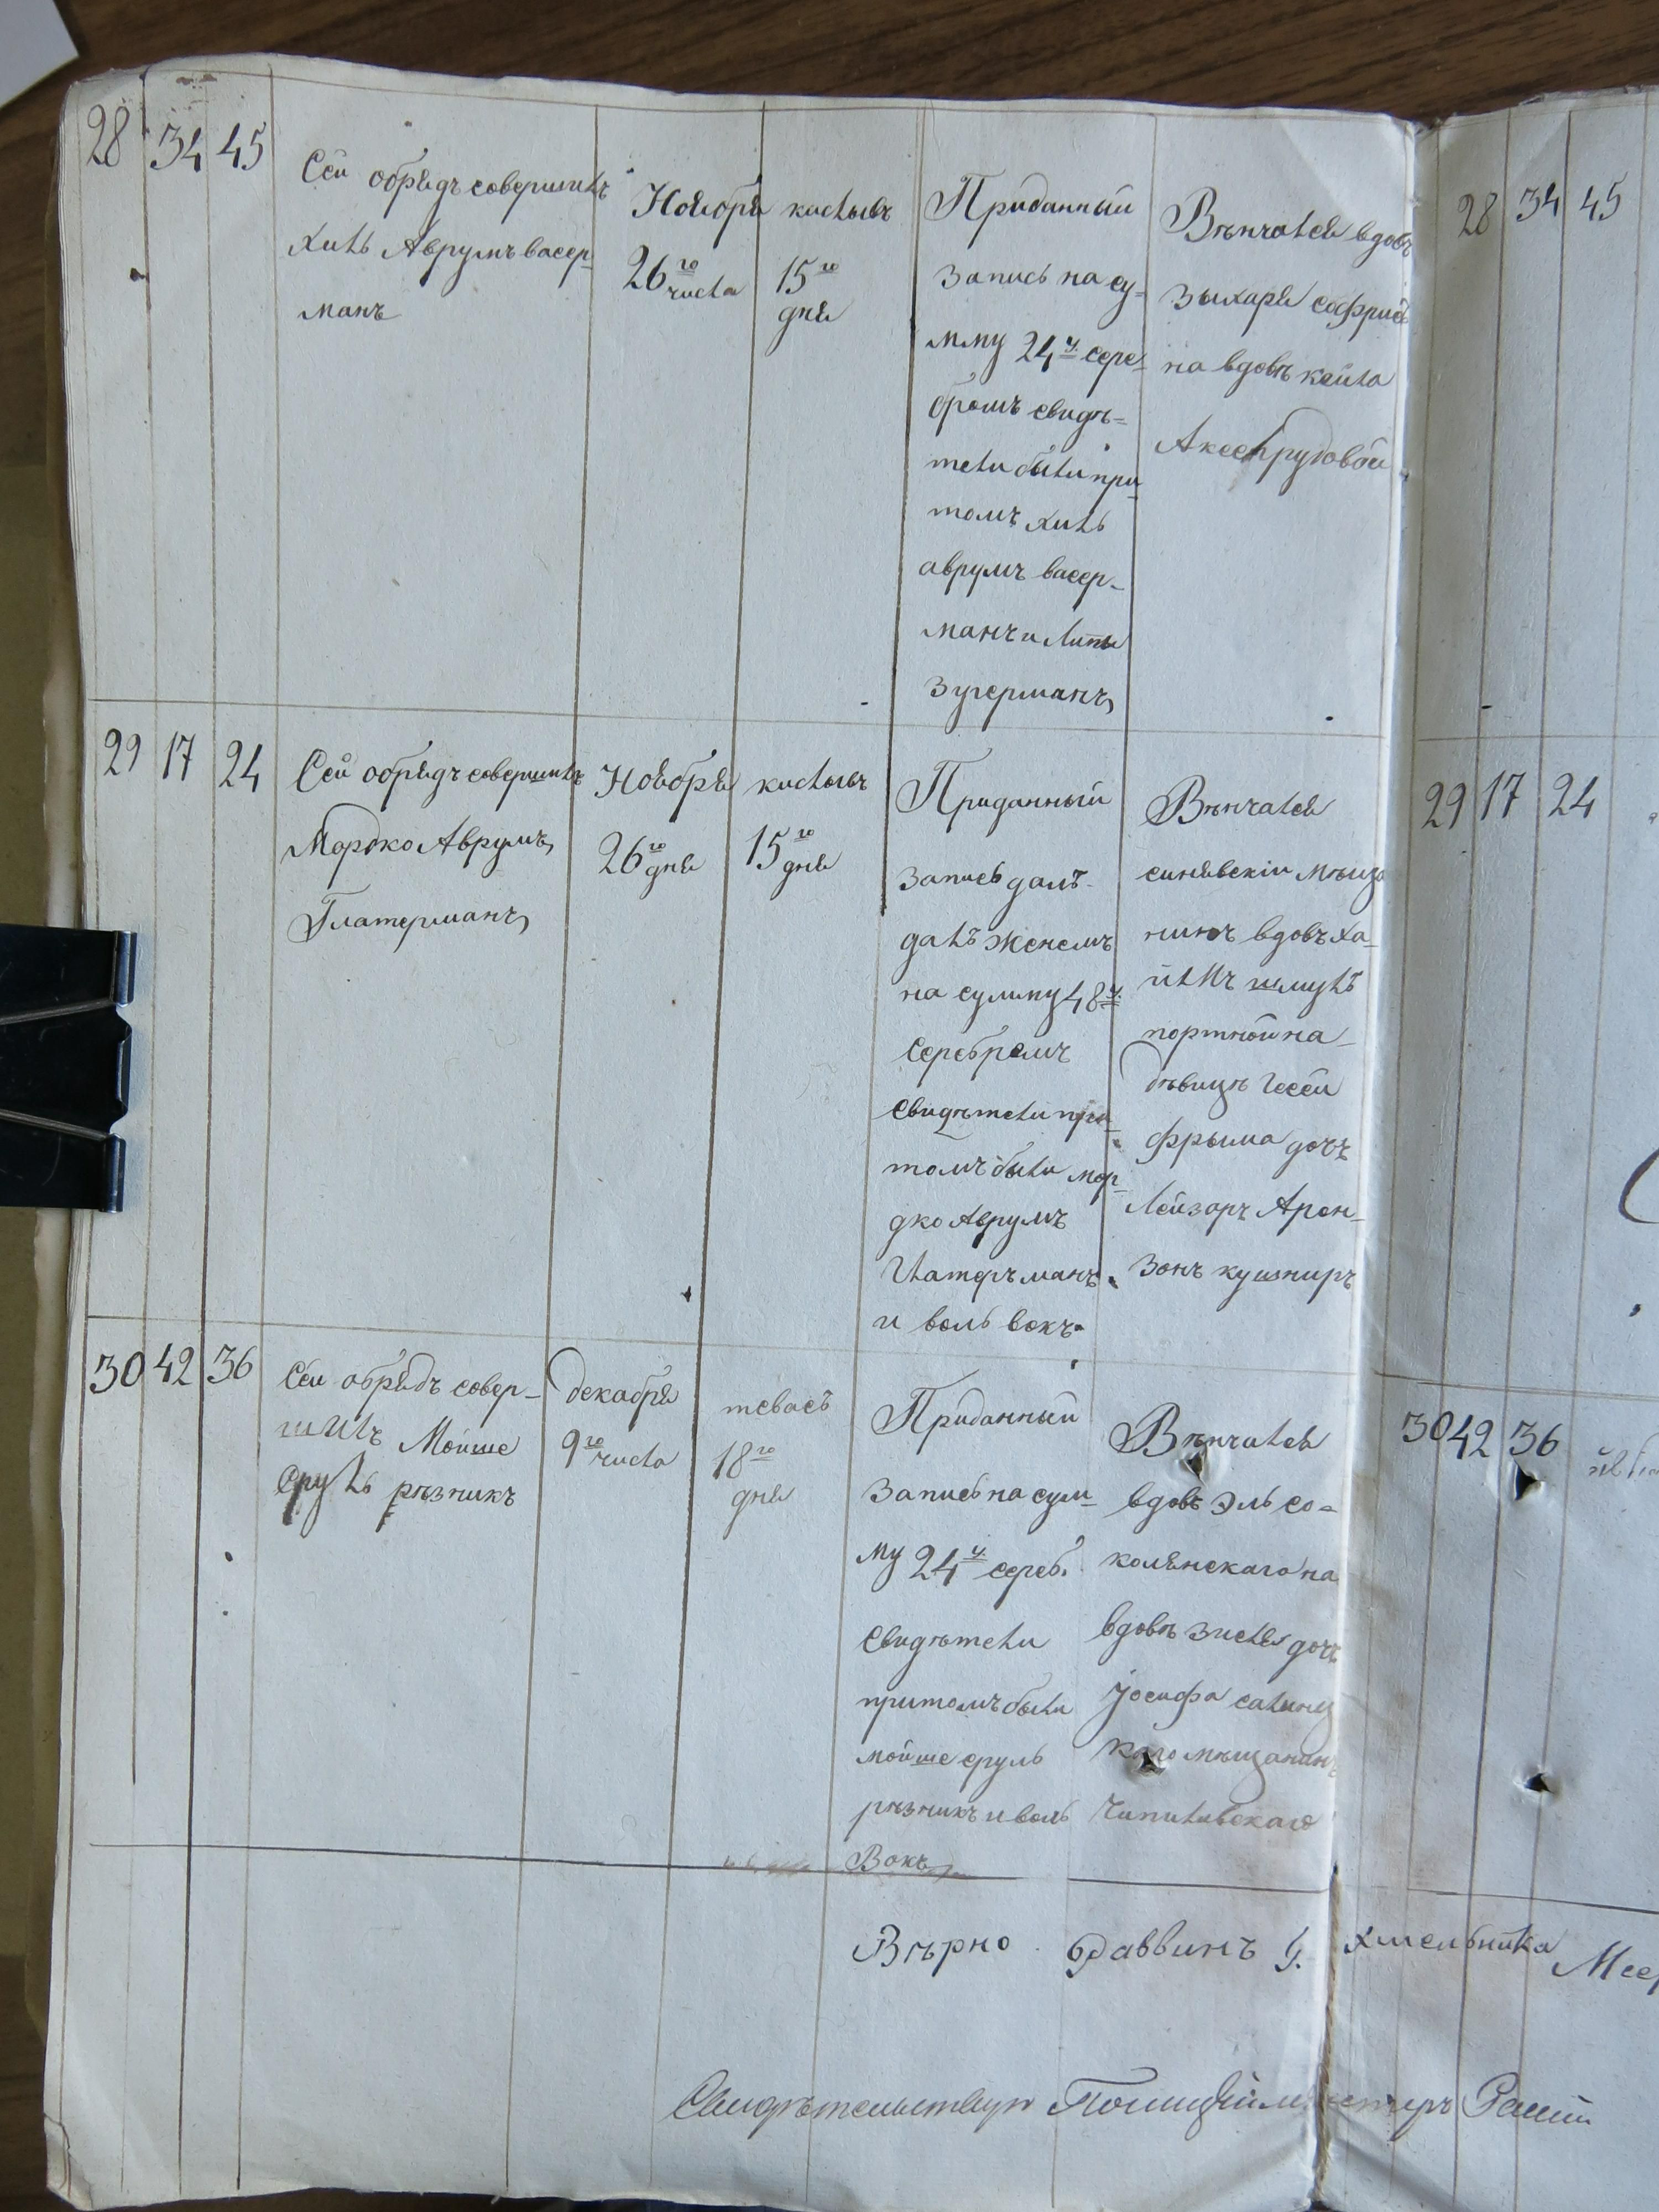 28 34 45
Сей обрядъ совершилъ
хиль Аврумъ васер-
манъ
Ноября
26го числа
кислывъ
15го
дня
Приданный
запись на су-
мму 24ч. сере-
бромъ свидѣ-
тели были при
томъ хиль
аврумъ васер-
манъ и Липы
Зугерманъ
Вѣнчался вдовъ
Зыхаря
на вдовѣ кейла
28 34 45
29 17 24
Сей обрядъ совершилъ
Мордко Аврумъ
Глатерманъ
Ноября
26го дня
кислывъ
15го
дня
Приданный
запись далъ
далъ женемъ
на сумму 48ч.
серебромъ
свидѣтели при
томъ были мор-
дко Аврумъ
Глатерьманъ
и воль вокъ
Вѣнчался
синявскiи мѣща
нинъ вдовъ ха-
шмуль
портной на
дѣвицѣ
фрыма дочъ
Лейзоръ Арон-
зонъ кушниръ
29 17 24
30 42 36
Сей обрядъ совер-
шилъ Мойше
Сруль рѣзникъ
декабря
9го числа
тевасъ
18го
дня
Приданный
запись на сум-
му 24ч. сереб.
свидѣтели
притомъ были
мойше сруль
рѣзникъ и воль
Вокъ
Вѣнчался
вдовъ Эль со-
колянскаго на
вдовѣ зисля дочъ
Iосифа
каго мѣщанинъ
30 42 36
Вѣрно Раввинъ г. хмельника
Свидѣтельствую Полицiймейстеръ